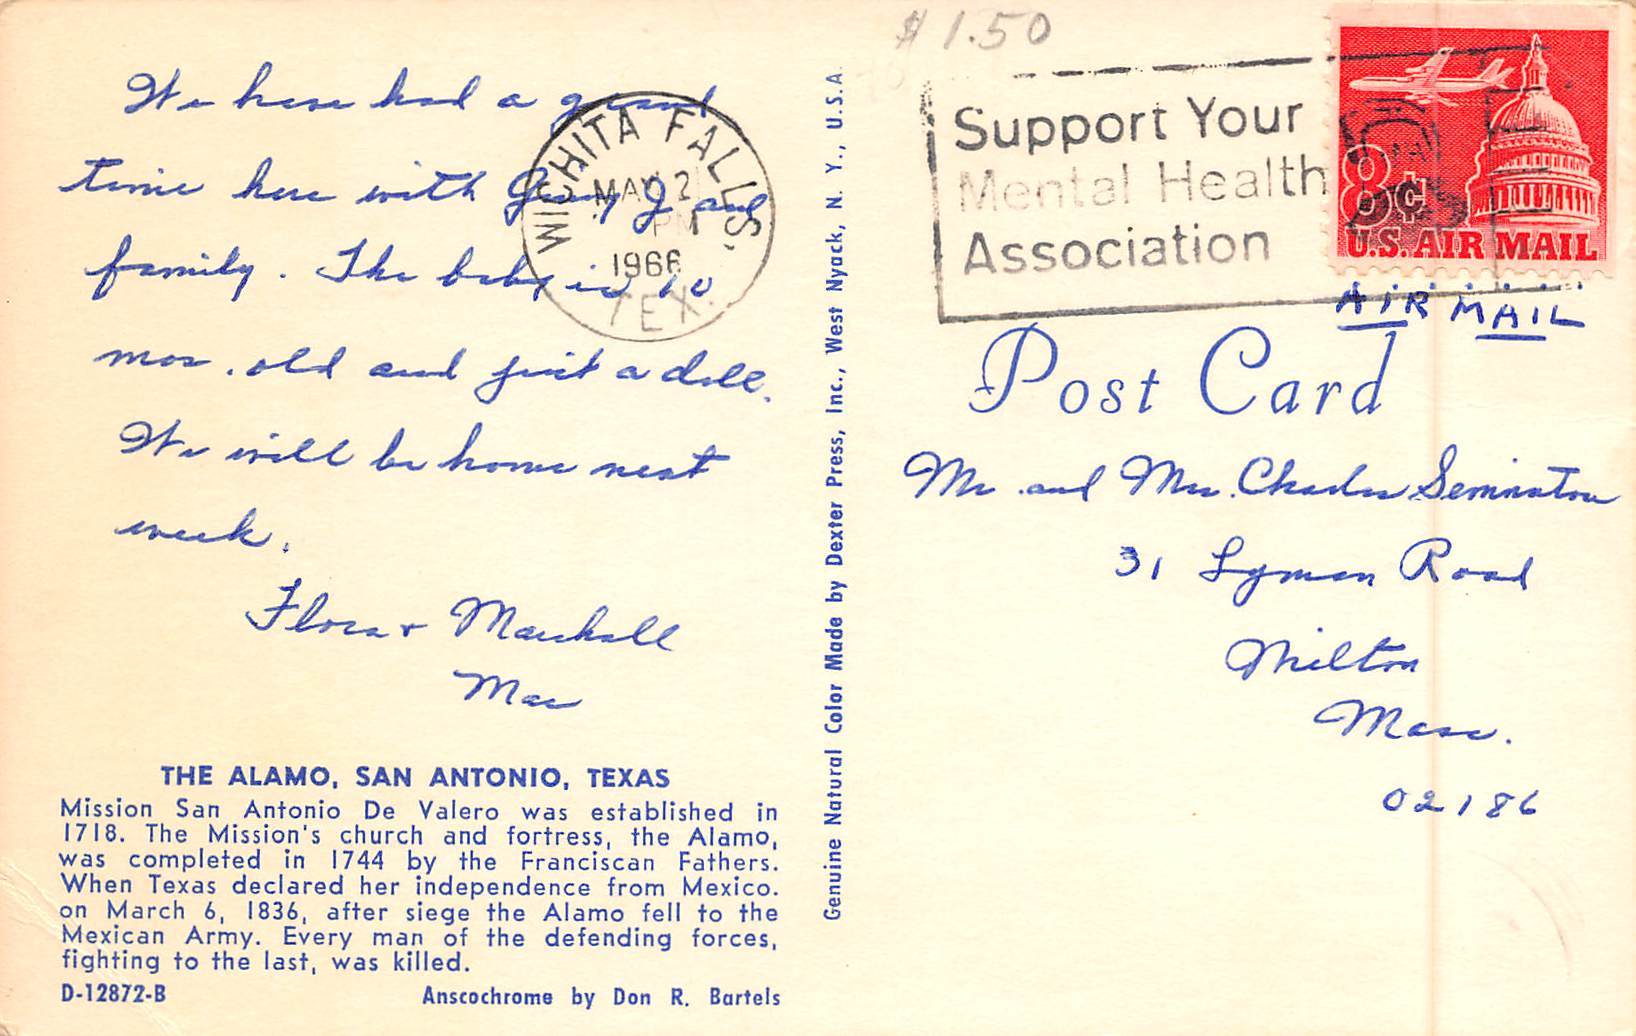 $1.50
We have had a grand
time here with Jerry J. and
family. The baby is 10
mos. old and just a doll.
We will be home next
week.
Flora + Marshall
Mac
THE ALAMO, SAN ANTONIO, TEXAS
Mission San Antonio De Valero was established in
1718. The Mission's church and fortress, the Alamo,
was completed in 1744 by the Franciscan Fathers.
When Texas declared her independence from Mexico.
on March 6, 1836, after siege the Alamo fell to the
Mexican Army. Every man of the defending forces,
fighting to the last, was killed.
D-12872-B Anscochrome by Don R. Bartels
Genuine Natural Color Made by Dexter Press, Inc., West Nyack, N. Y., U.S.A.
WICHITA FALLS,
MAY 2
PM
1966
TEX.
Support Your
Mental Health
Association
8¢
U.S. AIR MAIL
AIR MAIL
Post Card
Mr. and Mrs. Charles
31 Lyman Road
Milton
Mass.
02186